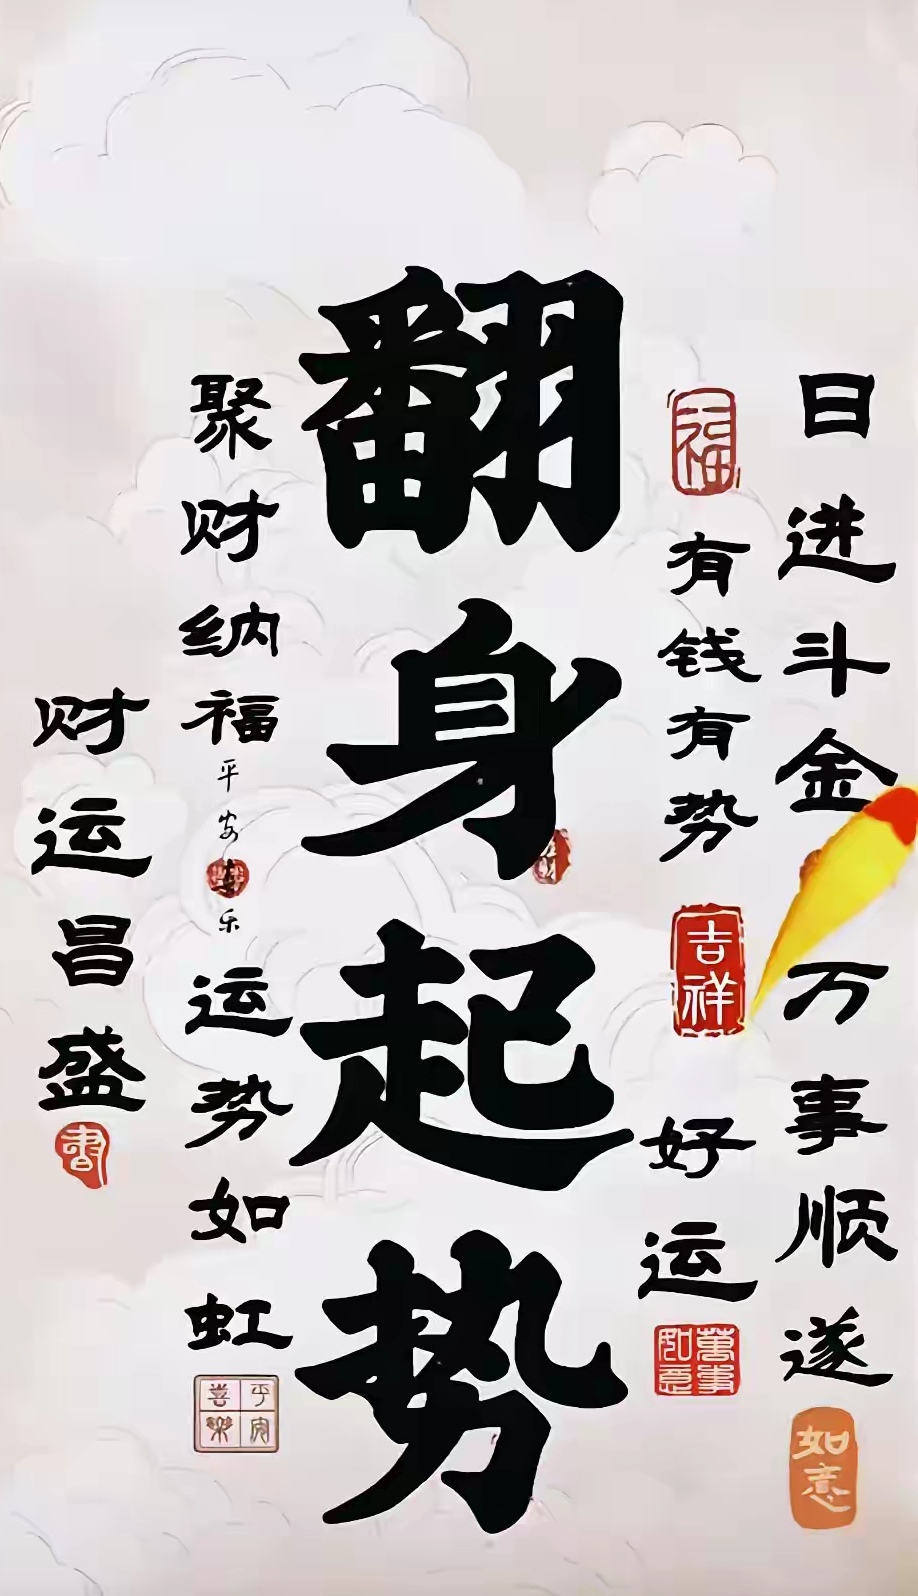 日进斗金万事顺遂
如意
福
有钱有势
吉祥
好运
萬事如意
翻身起势
聚财纳福
平安喜乐
运势如虹
平安喜樂
财运昌盛